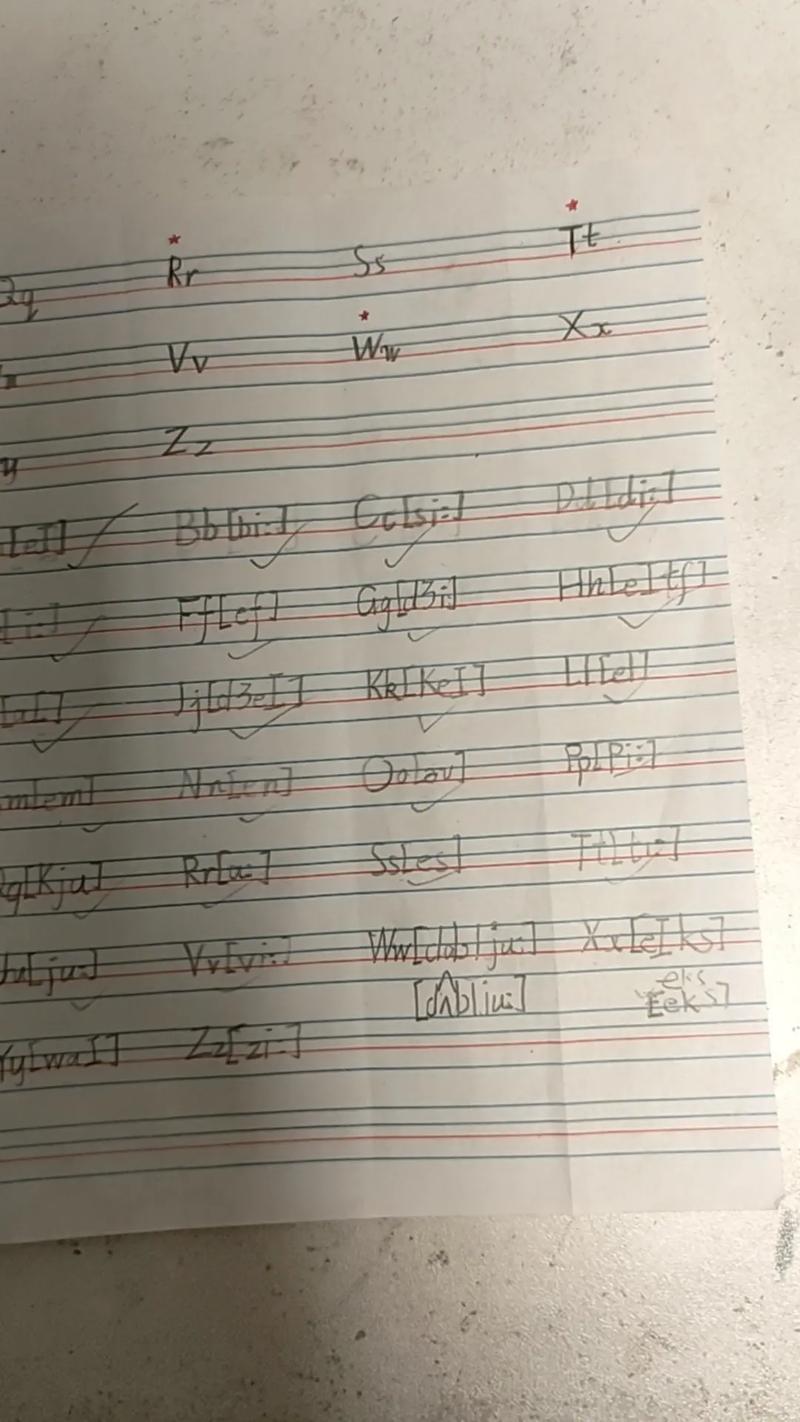 Qq Rr Ss Tt
Vv Ww Xx
y Zz
[eI] Bb[bi:] Cc[si:] Dd[di:]
[i:] Ff[ef] Gg[d3i:] Hh[eItʃ]
[aI] Jj[d3eI] Kk[KeI] Ll[el]
m[em] Nn[en] Oo[əu] Pp[Pi:]
q[Kju] Rr[a:] Ss[es] Tt[ti:]
u[ju:] Vv[vi:] Ww[dʌblju:] Xx[eIks]
eks
[dʌblju:] [eks]
Yy[waI] Zz[zi:]